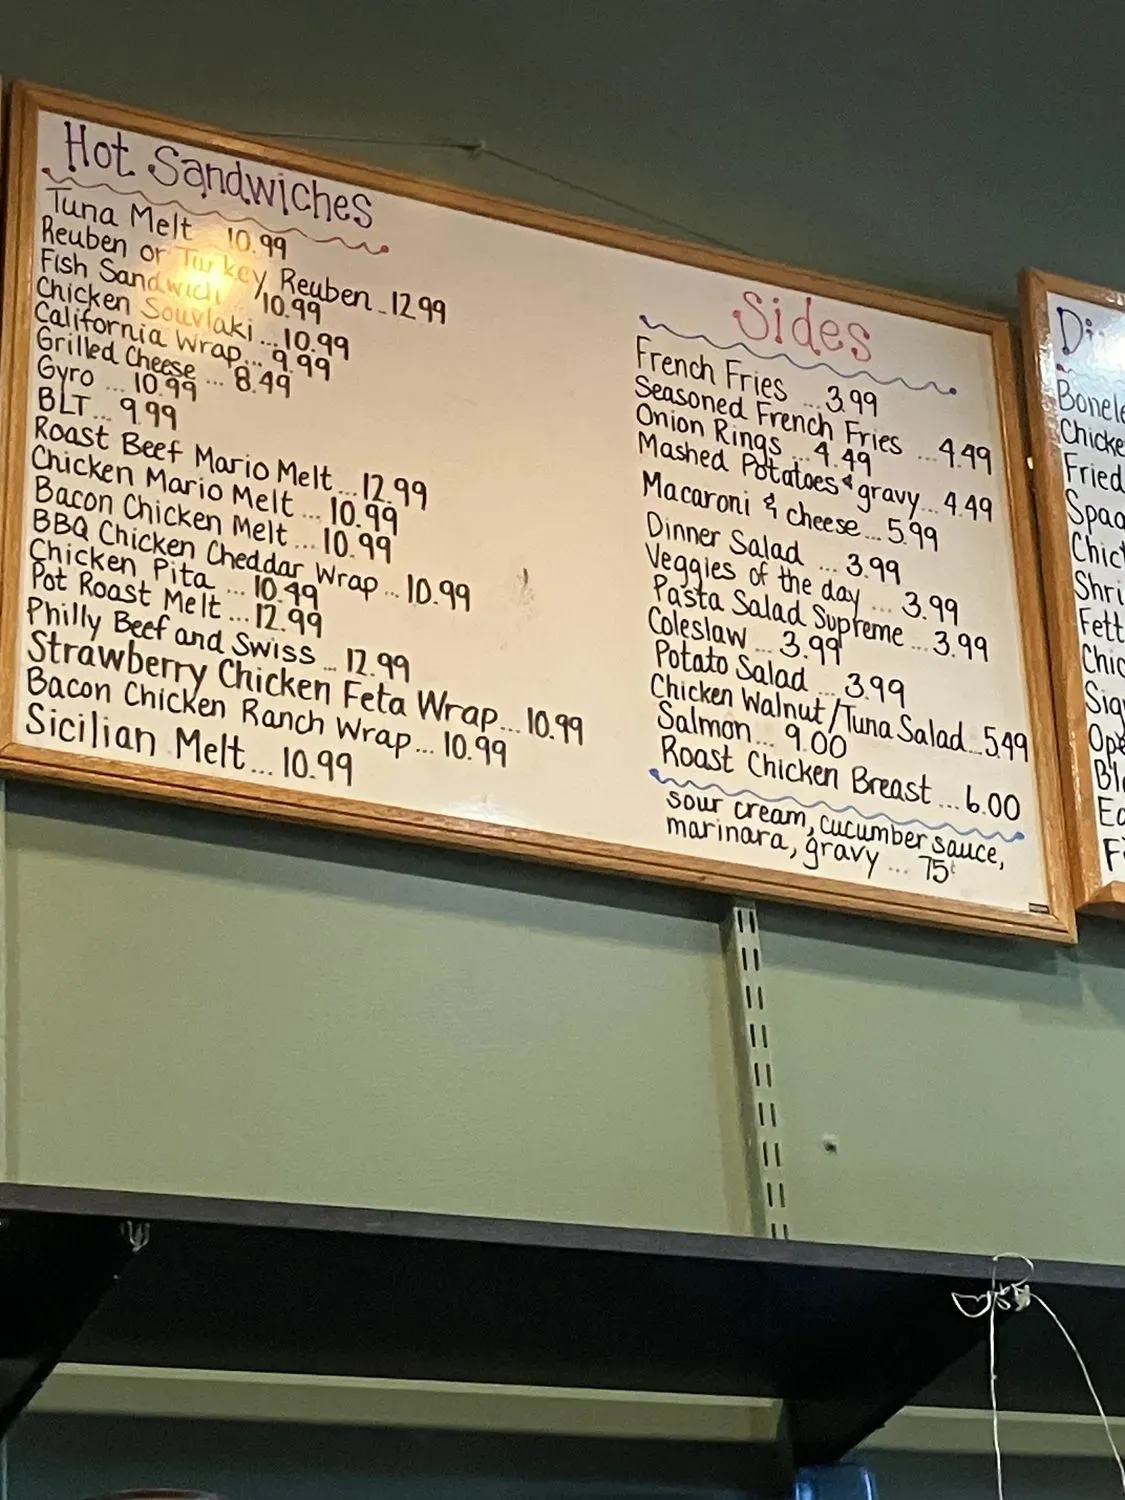 Hot Sandwiches
Tuna Melt 10.99
Reuben or Turkey Reuben .. 12.99
Fish Sandwich 10.99
Chicken Souvlaki ... 10.99
California Wrap... 9.99
Grilled Cheese ... 8.49
Gyro ... 10.99
BLT... 9.99
Roast Beef Mario Melt ... 12.99
Chicken Mario Melt ... 10.99
Bacon Chicken Melt ... 10.99
BBQ Chicken Cheddar Wrap ... 10.99
Chicken Pita ... 10.49
Pot Roast Melt ... 12.99
Philly Beef and Swiss ... 12.99
Strawberry Chicken Feta Wrap... 10.99
Bacon Chicken Ranch Wrap... 10.99
Sicilian Melt... 10.99
Sides
French Fries ... 3.99
Seasoned French Fries ... 4.49
Onion Rings ... 4.49
Mashed Potatoes & gravy... 4.49
Macaroni & cheese... 5.99
Dinner Salad ... 3.99
Veggies of the day ... 3.99
Pasta Salad Supreme ... 3.99
Coleslaw ... 3.99
Potato Salad ... 3.99
Chicken Walnut/Tuna Salad...5.49
Salmon... 9.00
Roast Chicken Breast ... 6.00
sour cream, cucumber sauce,
marinara, gravy ... 75¢
Di
Bonele
Chicke
Fried
Spag
Chic
Shri
Fett
Chic
Sig
Ope
Bl
F